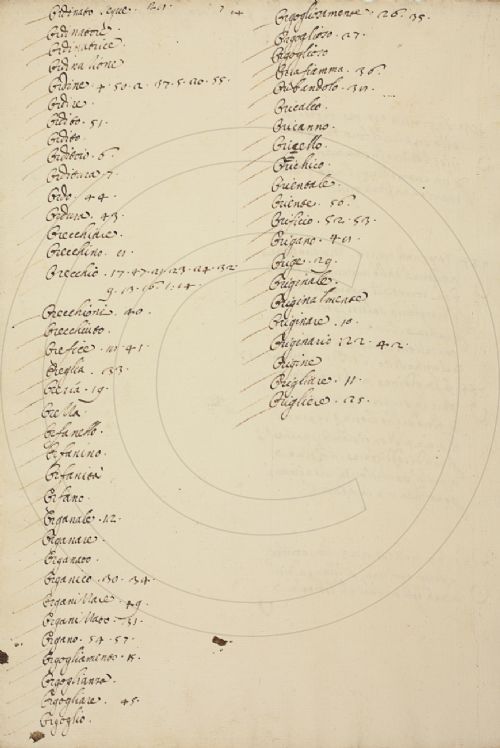 Ordinatore.
Ordinatrice.
Ordinazione.
Ordine.
Ordire.
Ordito. 51.
Ordito.
Orditoio. 6.
Orditura 7.
Ordo. 44.
Ordura. 43.
Orecchiare.
Orecchino. 11.
Orecchio. 17. 47. 21. 23. 24. 32.
Orecchione. 40.
Orecchiuto.
Orefice. 41.
Oreglia. 33.
Oreria. 19.
Orfanello.
Orfanino.
Orfanità
Orfano.
Organale. 12.
Organare.
Organato.
Organico. 30. 34.
Organizzare. 49.
Organizzato. 31.
Organo. 54. 57.
Orgogliamento.
Orgoglianza.
Orgogliare. 45.
Orgoglio.
Orgogliosamente. 26. 35.
Orgoglioso. 27.
Orgoglioso
Oriafiamma. 36.
Oribandolo.
Oricalco.
Oricanno.
Oricello.
Orichico.
Orientale.
Oriente. 56.
Orificio. 52. 53.
Origano.
Orige. 29.
Originale.
Originalmente
Originare. 10.
Originario 22. 42.
Origine
Origliare. 11.
Origliere. 25.